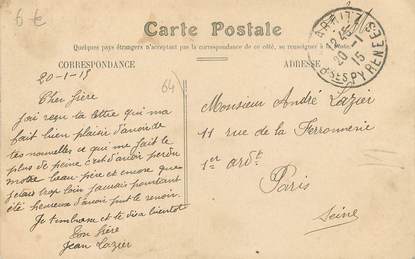 6 €
Carte Postale
Quelques pays étrangers n'acceptant pas la correspondance de ce côté, se renseigner à la Poste.
CORRESPONDANCE
ADRESSE
BIARRITZ
12-45
20-1
15
Bses PYRENEES
20-1-15
64
Cher frère
J'ai reçu ta lettre qui m'a
fait bien plaisir d'avoir de
tes nouvelles ce qui me fait le
plus de peine c'est d'avoir perdu
notre beau père et encore que
j'étais trop loin j'aurais pourtant
été heureux d'avoir put le revoir.
Je t'embrasse et te dis a bientot
Ton frère
Jean Lazier
Monsieur André Lazier
11 rue de la Ferronnerie
1er ardt
Paris
Seine